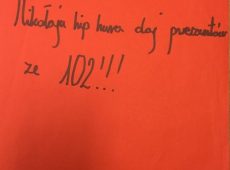 Mikołaju hip hurra daj prezentów
ze 102!!!